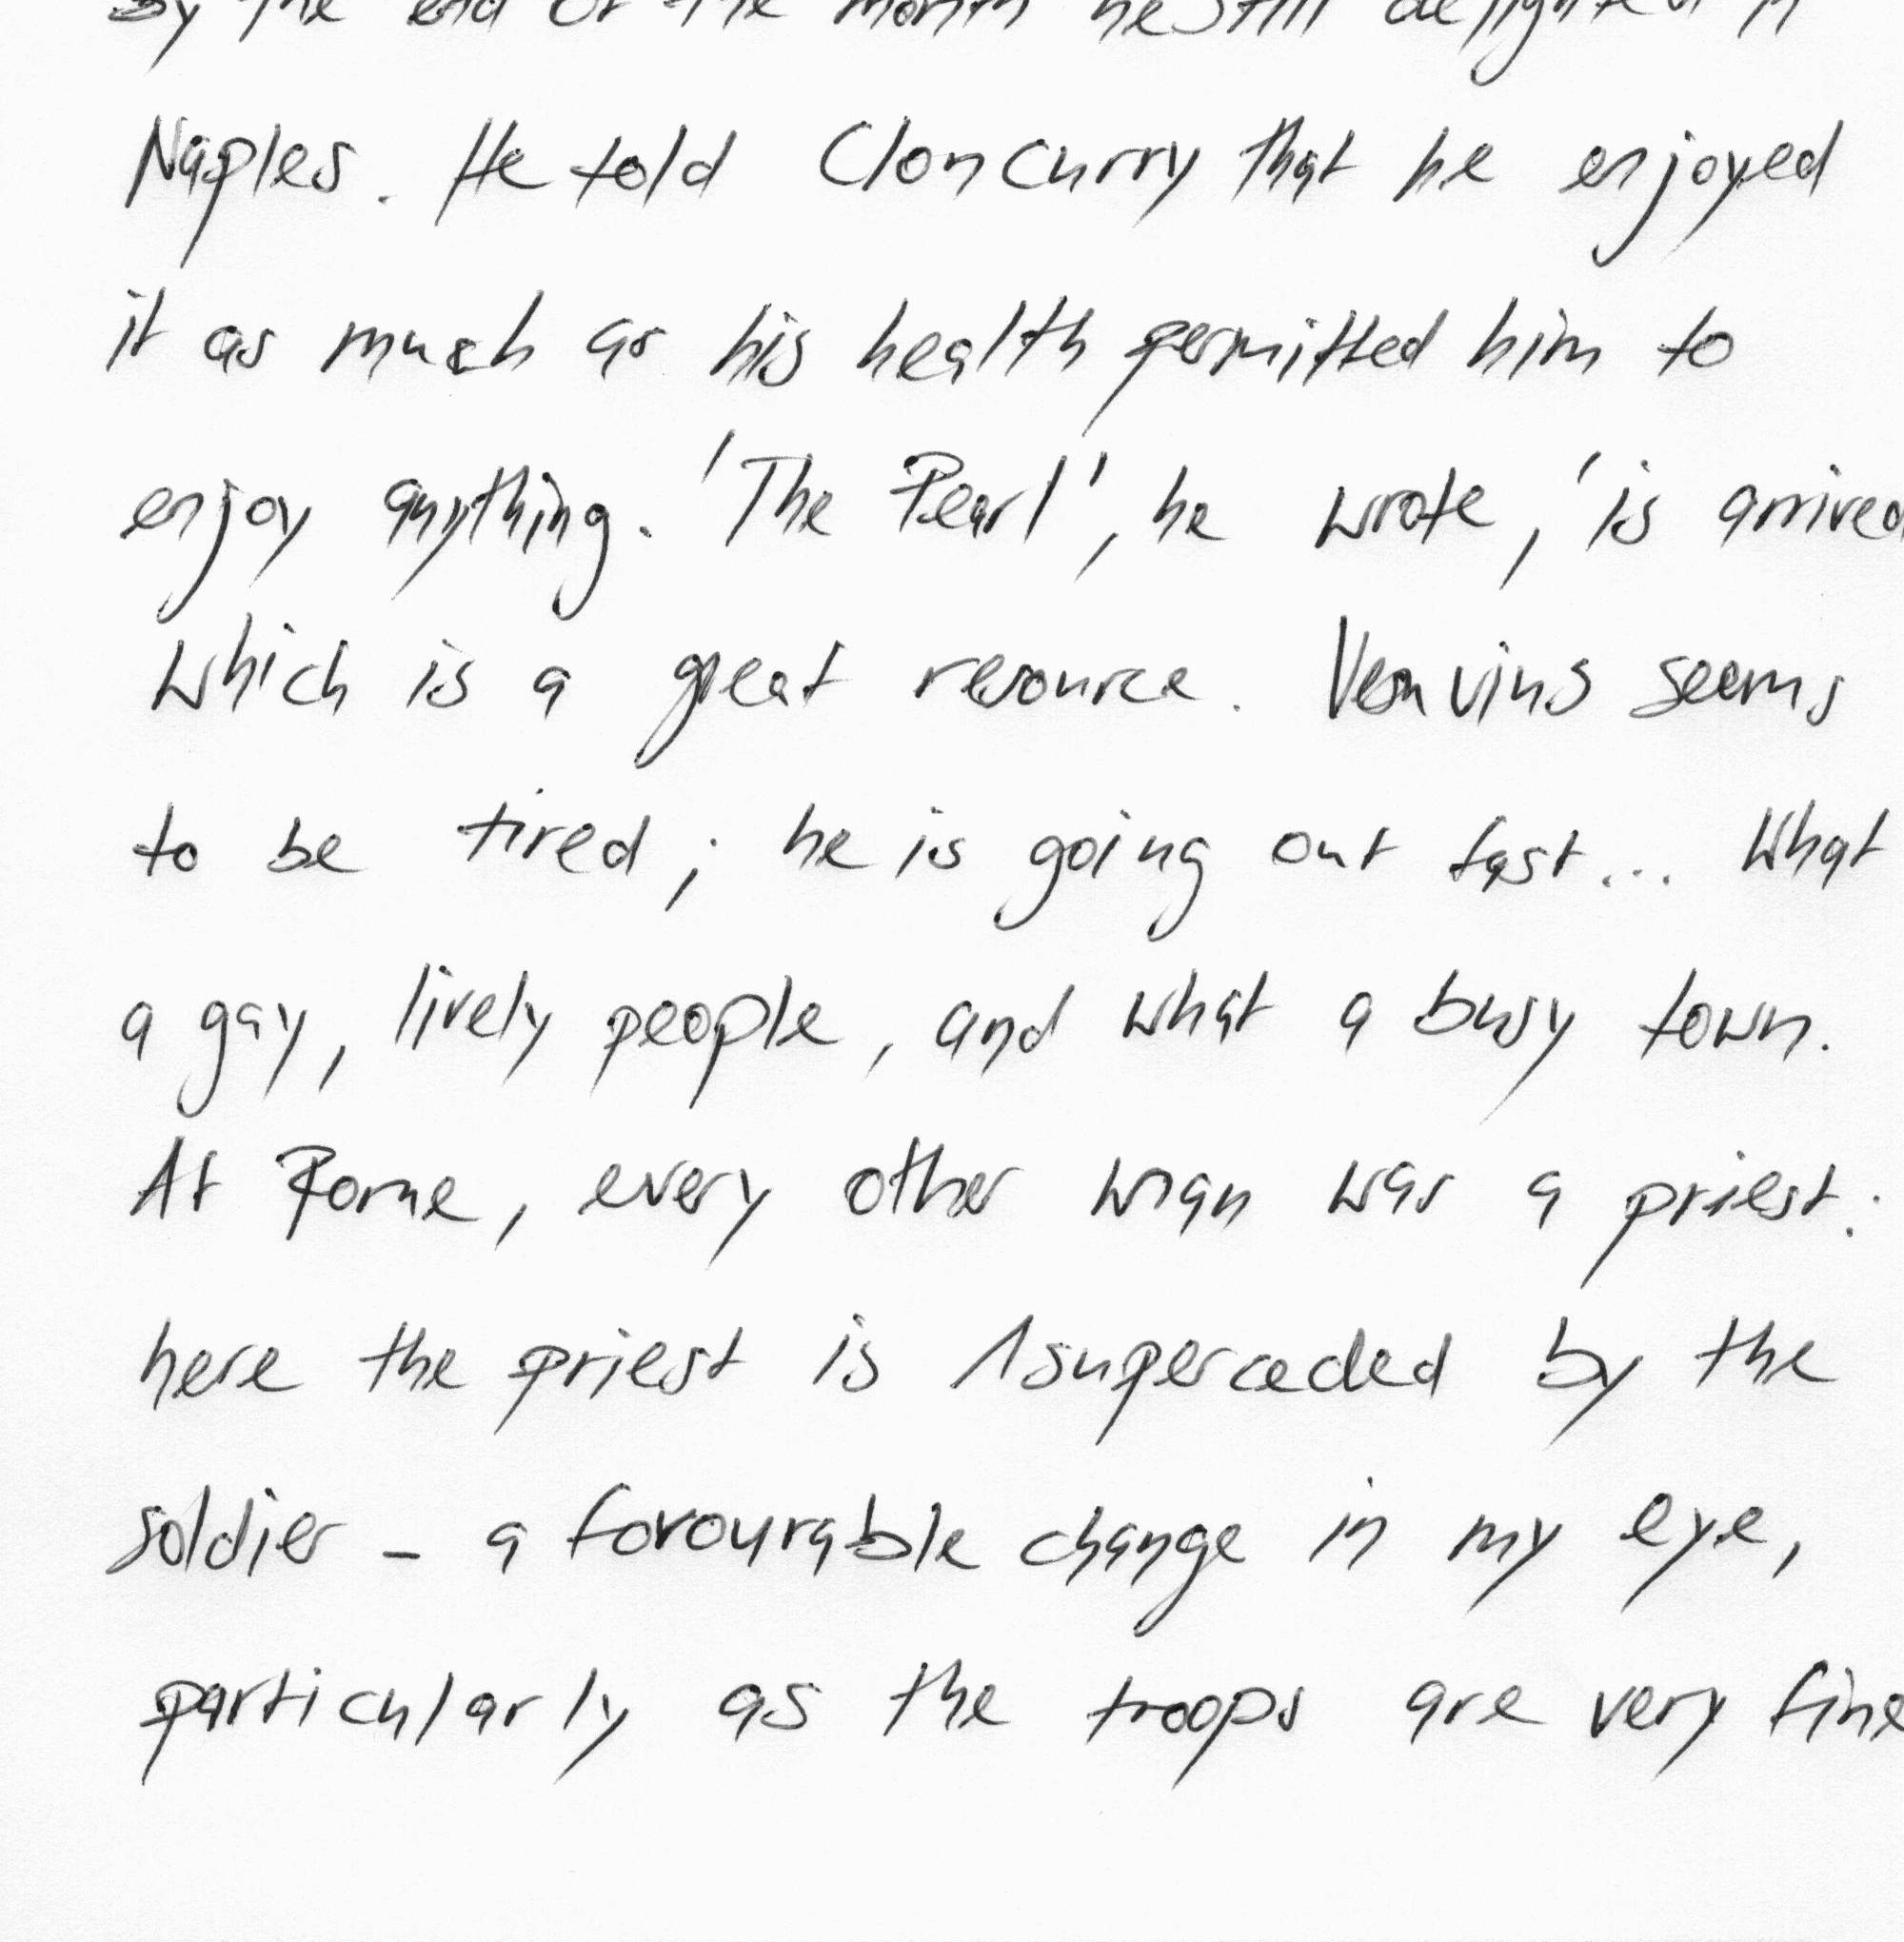 By the end of the month he still delighted in
Naples. He told Cloncurry that he enjoyed
it as much as his health permitted him to
enjoy anything. 'The Pearl', he wrote, 'is arrived
which is a great resource. Vesuvius seems
to be tired; he is going out fast... What
a gay, lively people, and what a busy town.
At Rome, every other man was a priest:
here the priest is superceded by the
soldier - a favourable change in my eye,
particularly as the troops are very fine